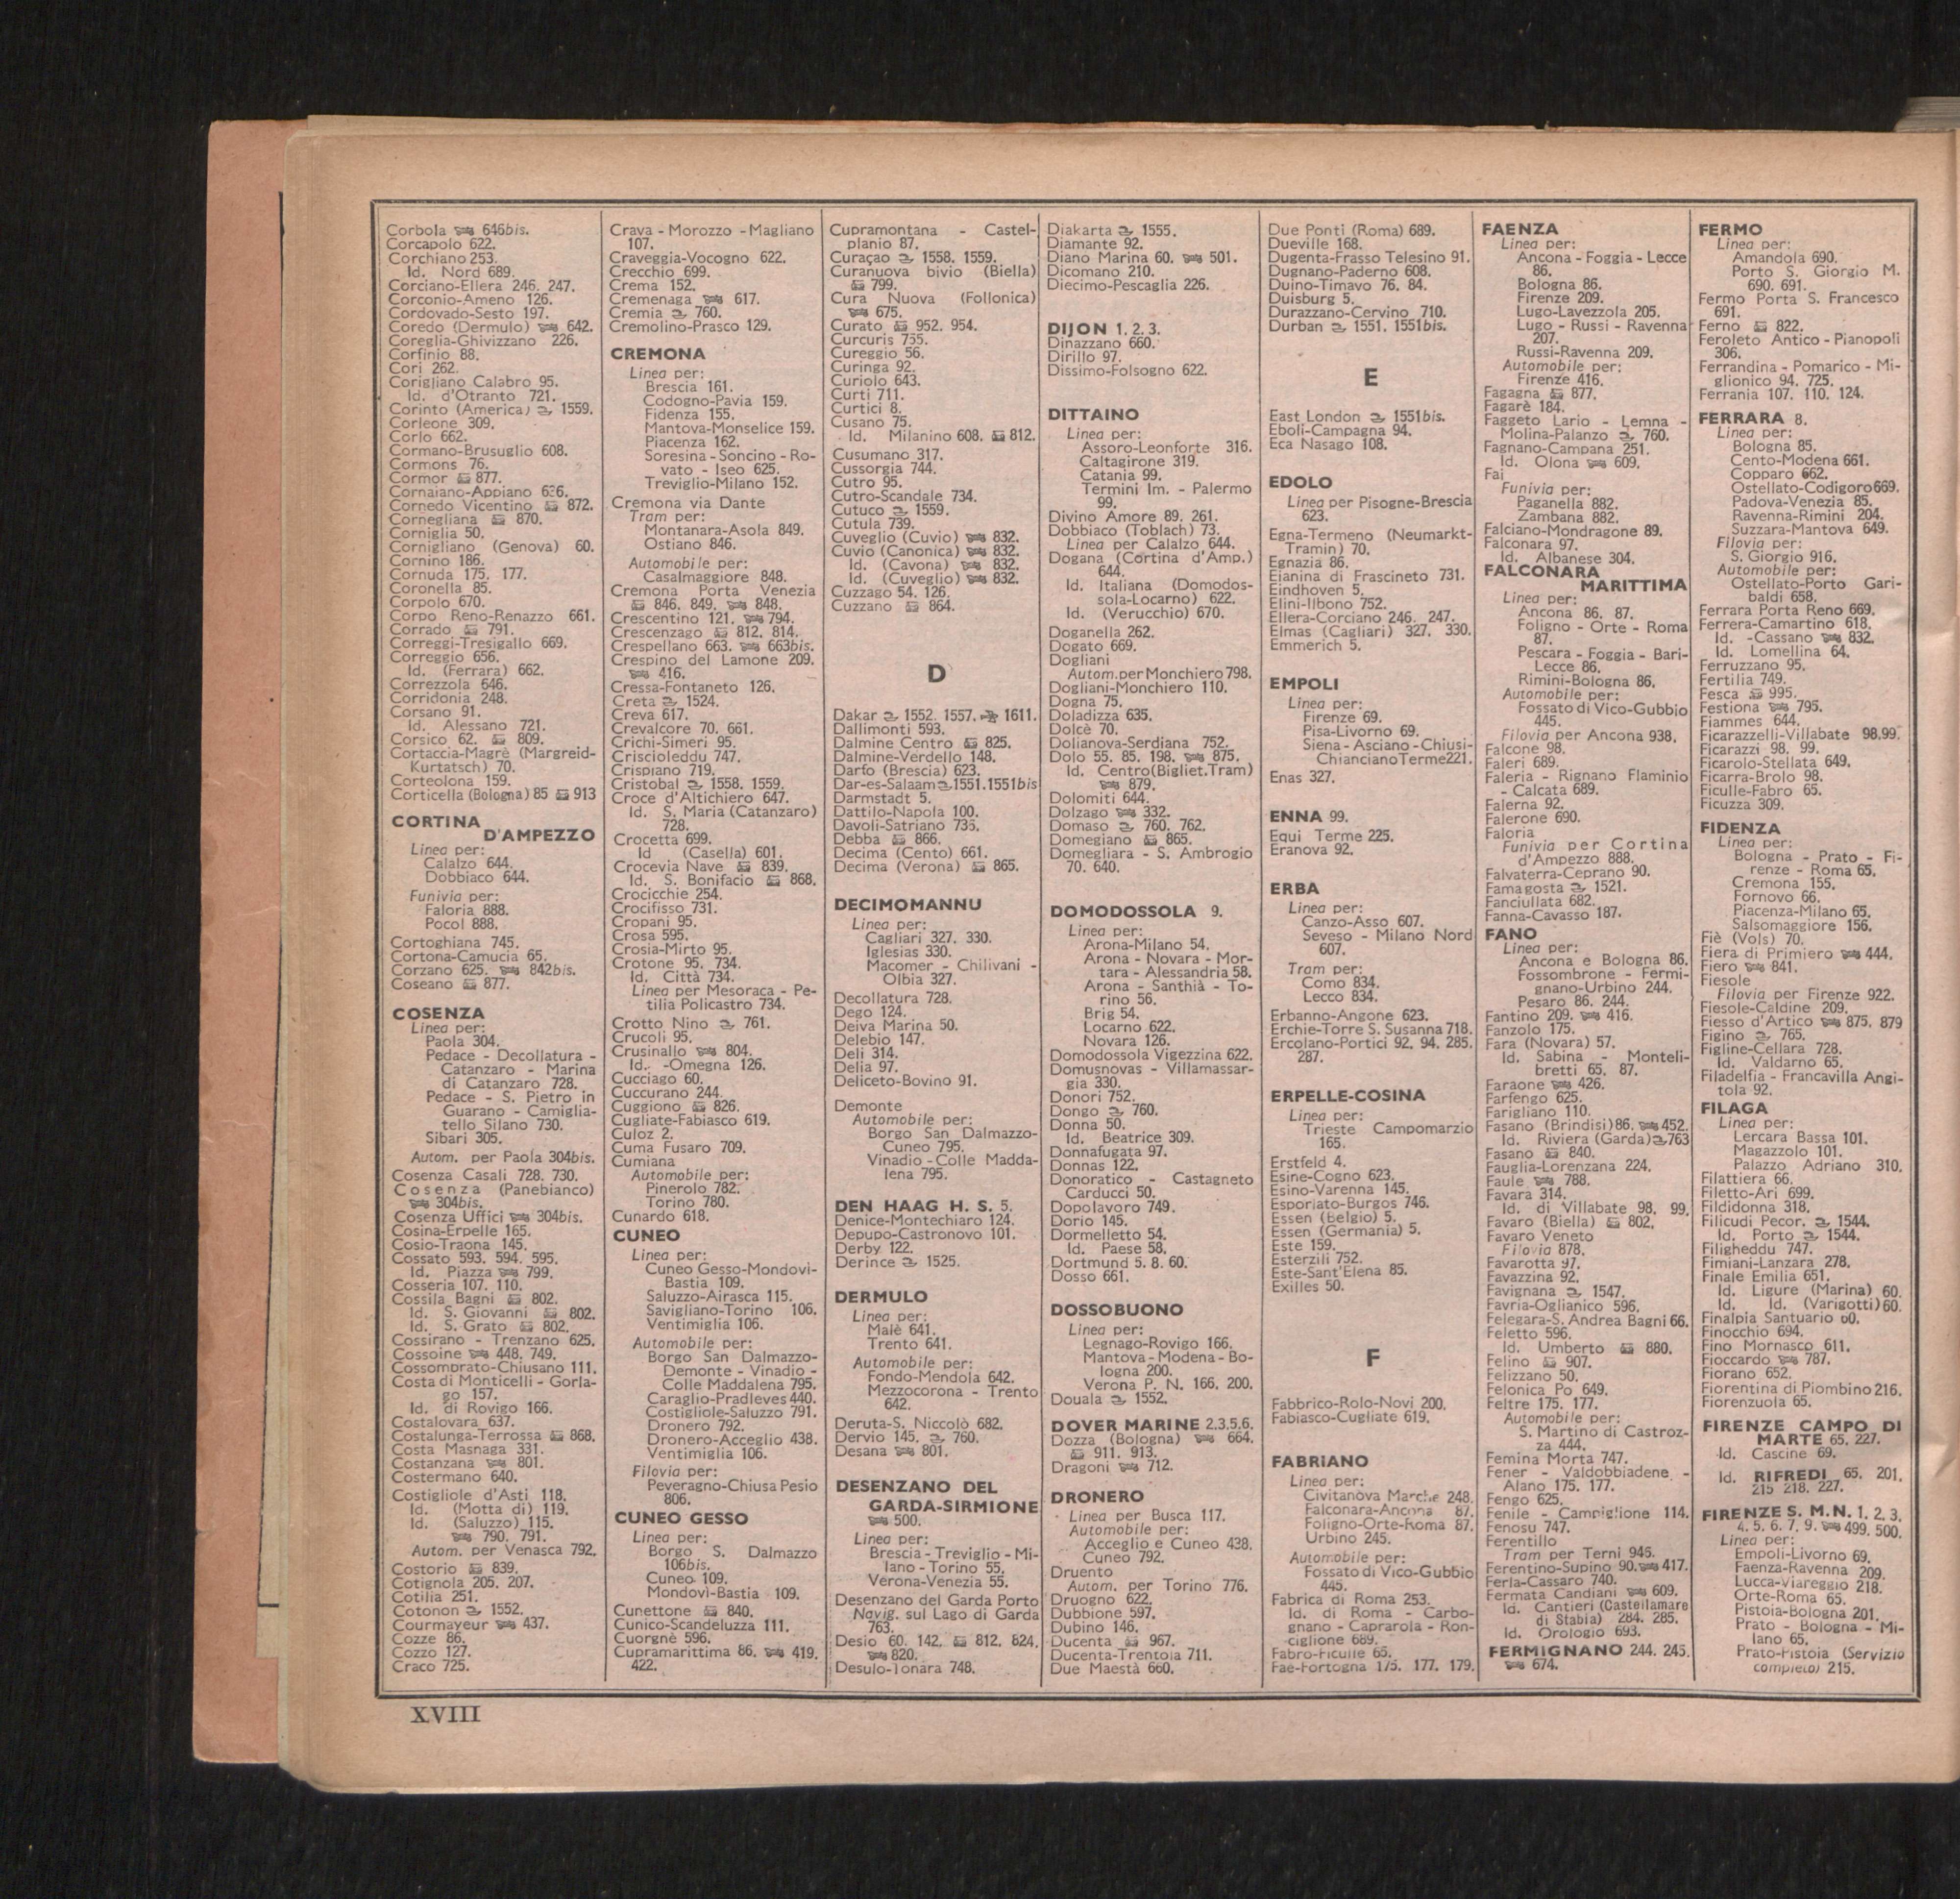 Corbola 646bis.
Corcapolo 622.
Corchiano 253.
Id. Nord 689.
Corciano-Ellera 246. 247.
Corconio-Ameno 126.
Cordovado-Sesto 197.
Coredo (Dermulo) 642.
Coreglia-Ghivizzano 226.
Corfinio 88.
Cori 262.
Corigliano Calabro 95.
Id. d'Otranto 721.
Corinto (America) 1559.
Corleone 309.
Corlo 662.
Cormano-Brusuglio 608.
Cormons 76.
Cormor 877.
Cornaiano-Appiano 636.
Cornedo Vicentino 872.
Cornegliana 870.
Corniglia 50.
Cornigliano (Genova) 60.
Cornino 186.
Cornuda 175. 177.
Coronella 85.
Corpolo 670.
Corpo Reno-Renazzo 661.
Corrado 791.
Correggi-Tresigallo 669.
Correggio 656.
Id. (Ferrara) 662.
Correzzola 646.
Corridonia 248.
Corsano 91.
Id. Alessano 721.
Corsico 62. 809.
Cortaccia-Magrè (Margreid-
Kurtatsch) 70.
Corteolona 159.
Corticella (Bologna) 85 913
CORTINA
D'AMPEZZO
Linea per:
Calalzo 644.
Dobbiaco 644.
Funivia per:
Faloria 888.
Pocol 888.
Cortoghiana 745.
Cortona-Camucia 65.
Corzano 625. 842bis.
Coseano 877.
COSENZA
Linea per:
Paola 304.
Pedace - Decollatura -
Catanzaro - Marina
di Catanzaro 728.
Pedace - S. Pietro in
Guarano - Camiglia-
tello Silano 730.
Sibari 305.
Autom. per Paola 304bis.
Cosenza Casali 728. 730.
Cosenza (Panebianco)
304bis.
Cosenza Uffici 304bis.
Cosina-Erpelle 165.
Cosio-Traona 145.
Cossato 593. 594. 595.
Id. Piazza 799.
Cosseria 107. 110.
Cossila Bagni 802.
Id. S. Giovanni 802.
Id. S. Grato 802.
Cossirano - Trenzano 625.
Cossoine 448. 749.
Cossomprato-Chiusano 111.
Costa di Monticelli - Gorla-
go 157.
Id. di Rovigo 166.
Costalovara 637.
Costalunga-Terrossa 868.
Costa Masnaga 331.
Costanzana 801.
Costermano 640.
Costigliole d'Asti 118.
Id. (Motta di) 119.
Id. (Saluzzo) 115.
790. 791.
Autom. per Venasca 792.
Costorio 839.
Cotignola 205. 207.
Cotilia 251.
Cotonon 1552.
Courmayeur 437.
Cozze 86.
Cozzo 127.
Craco 725.
Crava - Morozzo - Magliano
107.
Craveggia-Vocogno 622.
Crecchio 699.
Crema 152.
Cremenaga 617.
Cremia 760.
Cremolino-Prasco 129.
CREMONA
Linea per:
Brescia 161.
Codogno-Pavia 159.
Fidenza 155.
Mantova-Monselice 159.
Piacenza 162.
Soresina - Soncino - Ro-
vato - Iseo 625.
Treviglio-Milano 152.
Cremona via Dante
Tram per:
Montanara-Asola 849.
Ostiano 846.
Automobile per:
Casalmaggiore 848.
Cremona Porta Venezia
846. 849. 848.
Crescentino 121. 794.
Crescenzago 812. 814.
Crespellano 663. 663bis.
Crespino del Lamone 209.
416.
Cressa-Fontaneto 126.
Creta 1524.
Creva 617.
Crevalcore 70. 661.
Crichi-Simeri 95.
Criscioleddu 747.
Crispiano 719.
Cristobal 1558. 1559.
Croce d'Altichiero 647.
Id. S. Maria (Catanzaro)
728.
Crocetta 699.
Id (Casella) 601.
Crocevia Nave 839.
Id. S. Bonifacio 868.
Crocicchie 254.
Crocifisso 731.
Cropani 95.
Crosa 595.
Crosia-Mirto 95.
Crotone 95. 734.
Id. Città 734.
Linea per Mesoraca - Pe-
tilia Policastro 734.
Crotto Nino 761.
Crucoli 95.
Crusinallo 804.
Id. -Omegna 126.
Cucciago 60.
Cuccurano 244.
Cuggiono 826.
Cugliate-Fabiasco 619.
Culoz 2.
Cuma Fusaro 709.
Cumiana
Automobile per:
Pinerolo 782.
Torino 780.
Cunardo 618.
CUNEO
Linea per:
Cuneo Gesso-Mondovì-
Bastia 109.
Saluzzo-Airasca 115.
Savigliano-Torino 106.
Ventimiglia 106.
Automobile per:
Borgo San Dalmazzo-
Demonte - Vinadio -
Colle Maddalena 795.
Caraglio-Pradleves 440.
Costigliole-Saluzzo 791.
Dronero 792.
Dronero-Acceglio 438.
Ventimiglia 106.
Filovia per:
Peveragno-Chiusa Pesio
806.
CUNEO GESSO
Linea per:
Borgo S. Dalmazzo
106bis.
Cuneo 109.
Mondovì-Bastia 109.
Cunettone 840.
Cunico-Scandeluzza 111.
Cuorgnè 596.
Cupramarittima 86. 419.
422.
Cupramontana - Castel-
planio 87.
Curaçao 1558. 1559.
Curanuova bivio (Biella)
799.
Cura Nuova (Follonica)
675.
Curato 952. 954.
Curcuris 755.
Cureggio 56.
Curinga 92.
Curiolo 643.
Curti 711.
Curtici 8.
Cusano 75.
Id. Milanino 608. 812.
Cusumano 317.
Cussorgia 744.
Cutro 95.
Cutro-Scandale 734.
Cutuco 1559.
Cutula 739.
Cuveglio (Cuvio) 832.
Cuvio (Canonica) 832.
Id. (Cavona) 832.
Id. (Cuveglio) 832.
Cuzzago 54. 126.
Cuzzano 864.
D
Dakar 1552. 1557. 1611.
Dallimonti 593.
Dalmine Centro 825.
Dalmine-Verdello 148.
Darfo (Brescia) 623.
Dar-es-Salaam 1551. 1551bis
Darmstadt 5.
Dattilo-Napola 100.
Davoli-Satriano 735.
Debba 866.
Decima (Cento) 661.
Decima (Verona) 865.
DECIMOMANNU
Linea per:
Cagliari 327. 330.
Iglesias 330.
Macomer - Chilivani -
Olbia 327.
Decollatura 728.
Dego 124.
Deiva Marina 50.
Delebio 147.
Deli 314.
Delia 97.
Deliceto-Bovino 91.
Demonte
Automobile per:
Borgo San Dalmazzo-
Cuneo 795.
Vinadio - Colle Madda-
lena 795.
DEN HAAG H. S. 5.
Denice-Montechiaro 124.
Depupo-Castronovo 101.
Derby 122.
Derince 1525.
DERMULO
Linea per:
Malè 641.
Trento 641.
Automobile per:
Fondo-Mendola 642.
Mezzocorona - Trento
642.
Deruta-S. Niccolò 682.
Dervio 145. 760.
Desana 801.
DESENZANO DEL
GARDA-SIRMIONE
500.
Linea per:
Brescia - Treviglio - Mi-
lano - Torino 55.
Verona-Venezia 55.
Desenzano del Garda Porto
Navig. sul Lago di Garda
763.
Desio 60. 142. 812. 824.
820.
Desulo-Tonara 748.
Diakarta 1555.
Diamante 92.
Diano Marina 60. 501.
Dicomano 210.
Diecimo-Pescaglia 226.
DIJON 1. 2. 3.
Dinazzano 660.
Dirillo 97.
Dissimo-Folsogno 622.
DITTAINO
Linea per:
Assoro-Leonforte 316.
Caltagirone 319.
Catania 99.
Termini Im. - Palermo
99.
Divino Amore 89. 261.
Dobbiaco (Toblach) 73.
Linea per Calalzo 644.
Dogana (Cortina d'Amp.)
644.
Id. Italiana (Domodos-
sola-Locarno) 622.
Id. (Verucchio) 670.
Doganella 262.
Dogato 669.
Dogliani
Autom. per Monchiero 798.
Dogliani-Monchiero 110.
Dogna 75.
Doladizza 635.
Dolcè 70.
Dolianova-Serdiana 752.
Dolo 55. 85. 198. 875.
Id. Centro (Bigliet. Tram)
879.
Dolomiti 644.
Dolzago 332.
Domaso 760. 762.
Domegiano 865.
Domegliara - S. Ambrogio
70. 640.
DOMODOSSOLA 9.
Linea per:
Arona-Milano 54.
Arona - Novara - Mor-
tara - Alessandria 58.
Arona - Santhià - To-
rino 56.
Brig 54.
Locarno 622.
Novara 126.
Domodossola Vigezzina 622.
Domusnovas - Villamassar-
gia 330.
Donori 752.
Dongo 760.
Donna 50.
Id. Beatrice 309.
Donnafugata 97.
Donnas 122.
Donoratico - Castagneto
Carducci 50.
Dopolavoro 749.
Dorio 145.
Dormelletto 54.
Id. Paese 58.
Dortmund 5. 8. 60.
Dosso 661.
DOSSOBUONO
Linea per:
Legnago-Rovigo 166.
Mantova - Modena - Bo-
logna 200.
Verona P. N. 166. 200.
Douala 1552.
DOVER MARINE 2.3.5.6.
Dozza (Bologna) 664.
911. 913.
Dragoni 712.
DRONERO
Linea per Busca 117.
Automobile per:
Acceglio e Cuneo 438.
Cuneo 792.
Druento
Autom. per Torino 776.
Druogno 622.
Dubbione 597.
Dubino 146.
Ducenta 967.
Ducenta-Trentola 711.
Due Maestà 660.
Due Ponti (Roma) 689.
Dueville 168.
Dugenta-Frasso Telesino 91.
Dugnano-Paderno 608.
Duino-Timavo 76. 84.
Duisburg 5.
Durazzano-Cervino 710.
Durban 1551. 1551bis.
E
East London 1551bis.
Eboli-Campagna 94.
Eca Nasago 108.
EDOLO
Linea per Pisogne-Brescia
623.
Egna-Termeno (Neumarkt-
Tramin) 70.
Egnazia 86.
Eianina di Frascineto 731.
Eindhoven 5.
Elini-Ilbono 752.
Ellera-Corciano 246. 247.
Elmas (Cagliari) 327. 330.
Emmerich 5.
EMPOLI
Linea per:
Firenze 69.
Pisa-Livorno 69.
Siena - Asciano - Chiusi-
Chianciano Terme 221.
Enas 327.
ENNA 99.
Equi Terme 225.
Eranova 92.
ERBA
Linea per:
Canzo-Asso 607.
Seveso - Milano Nord
607.
Tram per:
Como 834.
Lecco 834.
Erbanno-Angone 623.
Erchie-Torre S. Susanna 718.
Ercolano-Portici 92. 94. 285.
287.
ERPELLE-COSINA
Linea per:
Trieste Campomarzio
165.
Erstfeld 4.
Esine-Cogno 623.
Esino-Varenna 145.
Esporiato-Burgos 746.
Essen (Belgio) 5.
Essen (Germania) 5.
Este 159.
Esterzili 752.
Este-Sant'Elena 85.
Exilles 50.
F
Fabbrico-Rolo-Novi 200.
Fabiasco-Cugliate 619.
FABRIANO
Linea per:
Civitanova Marche 248.
Falconara-Ancona 87.
Foligno-Orte-Roma 87.
Urbino 245.
Automobile per:
Fossato di Vico-Gubbio
445.
Fabrica di Roma 253.
Id. di Roma - Carbo-
gnano - Caprarola - Ron-
ciglione 689.
Fabro-Ficulle 65.
Fae-Fortogna 175. 177. 179.
FAENZA
Linea per:
Ancona - Foggia - Lecce
86.
Bologna 86.
Firenze 209.
Lugo-Lavezzola 205.
Lugo - Russi - Ravenna
207.
Russi-Ravenna 209.
Automobile per:
Firenze 416.
Fagagna 877.
Fagarè 184.
Faggeto Lario - Lemna -
Molina-Palanzo 760.
Fagnano-Campana 251.
Id. Olona 609.
Fai
Funivia per:
Paganella 882.
Zambana 882.
Falciano-Mondragone 89.
Falconara 97.
Id. Albanese 304.
FALCONARA
MARITTIMA
Linea per:
Ancona 86. 87.
Foligno - Orte - Roma
87.
Pescara - Foggia - Bari-
Lecce 86.
Rimini-Bologna 86.
Automobile per:
Fossato di Vico-Gubbio
445.
Filovia per Ancona 938.
Falcone 98.
Faleri 689.
Faleria - Rignano Flaminio
- Calcata 689.
Falerna 92.
Falerone 690.
Faloria
Funivia per Cortina
d'Ampezzo 888.
Falvaterra-Ceprano 90.
Famagosta 1521.
Fanciullata 682.
Fanna-Cavasso 187.
FANO
Linea per:
Ancona e Bologna 86.
Fossombrone - Fermi-
gnano-Urbino 244.
Pesaro 86. 244.
Fantino 209. 416.
Fanzolo 175.
Fara (Novara) 57.
Id. Sabina - Monteli-
bretti 65. 87.
Faraone 426.
Farfengo 625.
Farigliano 110.
Fasano (Brindisi) 86. 452.
Id. Riviera (Garda) 763
Fasano 840.
Fauglia-Lorenzana 224.
Faule 788.
Favara 314.
Id. di Villabate 98. 99.
Favaro (Biella) 802.
Favaro Veneto
Filovia 878.
Favarotta 97.
Favazzina 92.
Favignana 1547.
Favria-Oglianico 596.
Felegara-S. Andrea Bagni 66.
Feletto 596.
Id. Umberto 880.
Felino 907.
Felizzano 50.
Felonica Po 649.
Feltre 175. 177.
Automobile per:
S. Martino di Castroz-
za 444.
Femina Morta 747.
Fener - Valdobbiadene -
Alano 175. 177.
Fengo 625.
Fenile - Campiglione 114.
Fenosu 747.
Ferentillo
Tram per Terni 945.
Ferentino-Supino 90. 417.
Ferla-Cassaro 740.
Fermata Candiani 609.
Id. Cantieri (Castellamare
di Stabia) 284. 285.
Id. Orologio 693.
FERMIGNANO 244. 245.
674.
FERMO
Linea per:
Amandola 690.
Porto S. Giorgio M.
690. 691.
Fermo Porta S. Francesco
691.
Ferno 822.
Feroleto Antico - Pianopoli
306.
Ferrandina - Pomarico - Mi-
glionico 94. 725.
Ferrania 107. 110. 124.
FERRARA 8.
Linea per:
Bologna 85.
Cento-Modena 661.
Copparo 662.
Ostellato-Codigoro 669.
Padova-Venezia 85.
Ravenna-Rimini 204.
Suzzara-Mantova 649.
Filovia per:
S. Giorgio 916.
Automobile per:
Ostellato-Porto Gari-
baldi 658.
Ferrara Porta Reno 669.
Ferrera-Camartino 618.
Id. -Cassano 832.
Id. Lomellina 64.
Ferruzzano 95.
Fertilia 749.
Fesca 995.
Festiona 795.
Fiammes 644.
Ficarazzelli-Villabate 98.99.
Ficarazzi 98. 99.
Ficarolo-Stellata 649.
Ficarra-Brolo 98.
Ficulle-Fabro 65.
Ficuzza 309.
FIDENZA
Linea per:
Bologna - Prato - Fi-
renze - Roma 65.
Cremona 155.
Fornovo 66.
Piacenza-Milano 65.
Salsomaggiore 156.
Fiè (Vols) 70.
Fiera di Primiero 444.
Fiero 841.
Fiesole
Filovia per Firenze 922.
Fiesole-Caldine 209.
Fiesso d'Artico 875. 879
Figino 765.
Figline-Cellara 728.
Id. Valdarno 65.
Filadelfia - Francavilla Angi-
tola 92.
FILAGA
Linea per:
Lercara Bassa 101.
Magazzolo 101.
Palazzo Adriano 310.
Filattiera 66.
Filetto-Ari 699.
Fildidonna 318.
Filicudi Pecor. 1544.
Id. Porto 1544.
Filigheddu 747.
Fimiani-Lanzara 278.
Finale Emilia 651.
Id. Ligure (Marina) 60.
Id. Id. (Varigotti) 60.
Finalpia Santuario 60.
Finocchio 694.
Fino Mornasco 611.
Fioccardo 787.
Fiorano 652.
Fiorentina di Piombino 216.
Fiorenzuola 65.
FIRENZE CAMPO DI
MARTE 65. 227.
Id. Cascine 69.
Id. RIFREDI 65. 201.
215 218. 227.
FIRENZE S. M. N. 1. 2. 3.
4. 5. 6. 7. 9. 499. 500.
Linea per:
Empoli-Livorno 69.
Faenza-Ravenna 209.
Lucca-Viareggio 218.
Orte-Roma 65.
Pistoia-Bologna 201.
Prato - Bologna - Mi-
lano 65.
Prato-Pistoia (Servizio
completo) 215.
XVIII